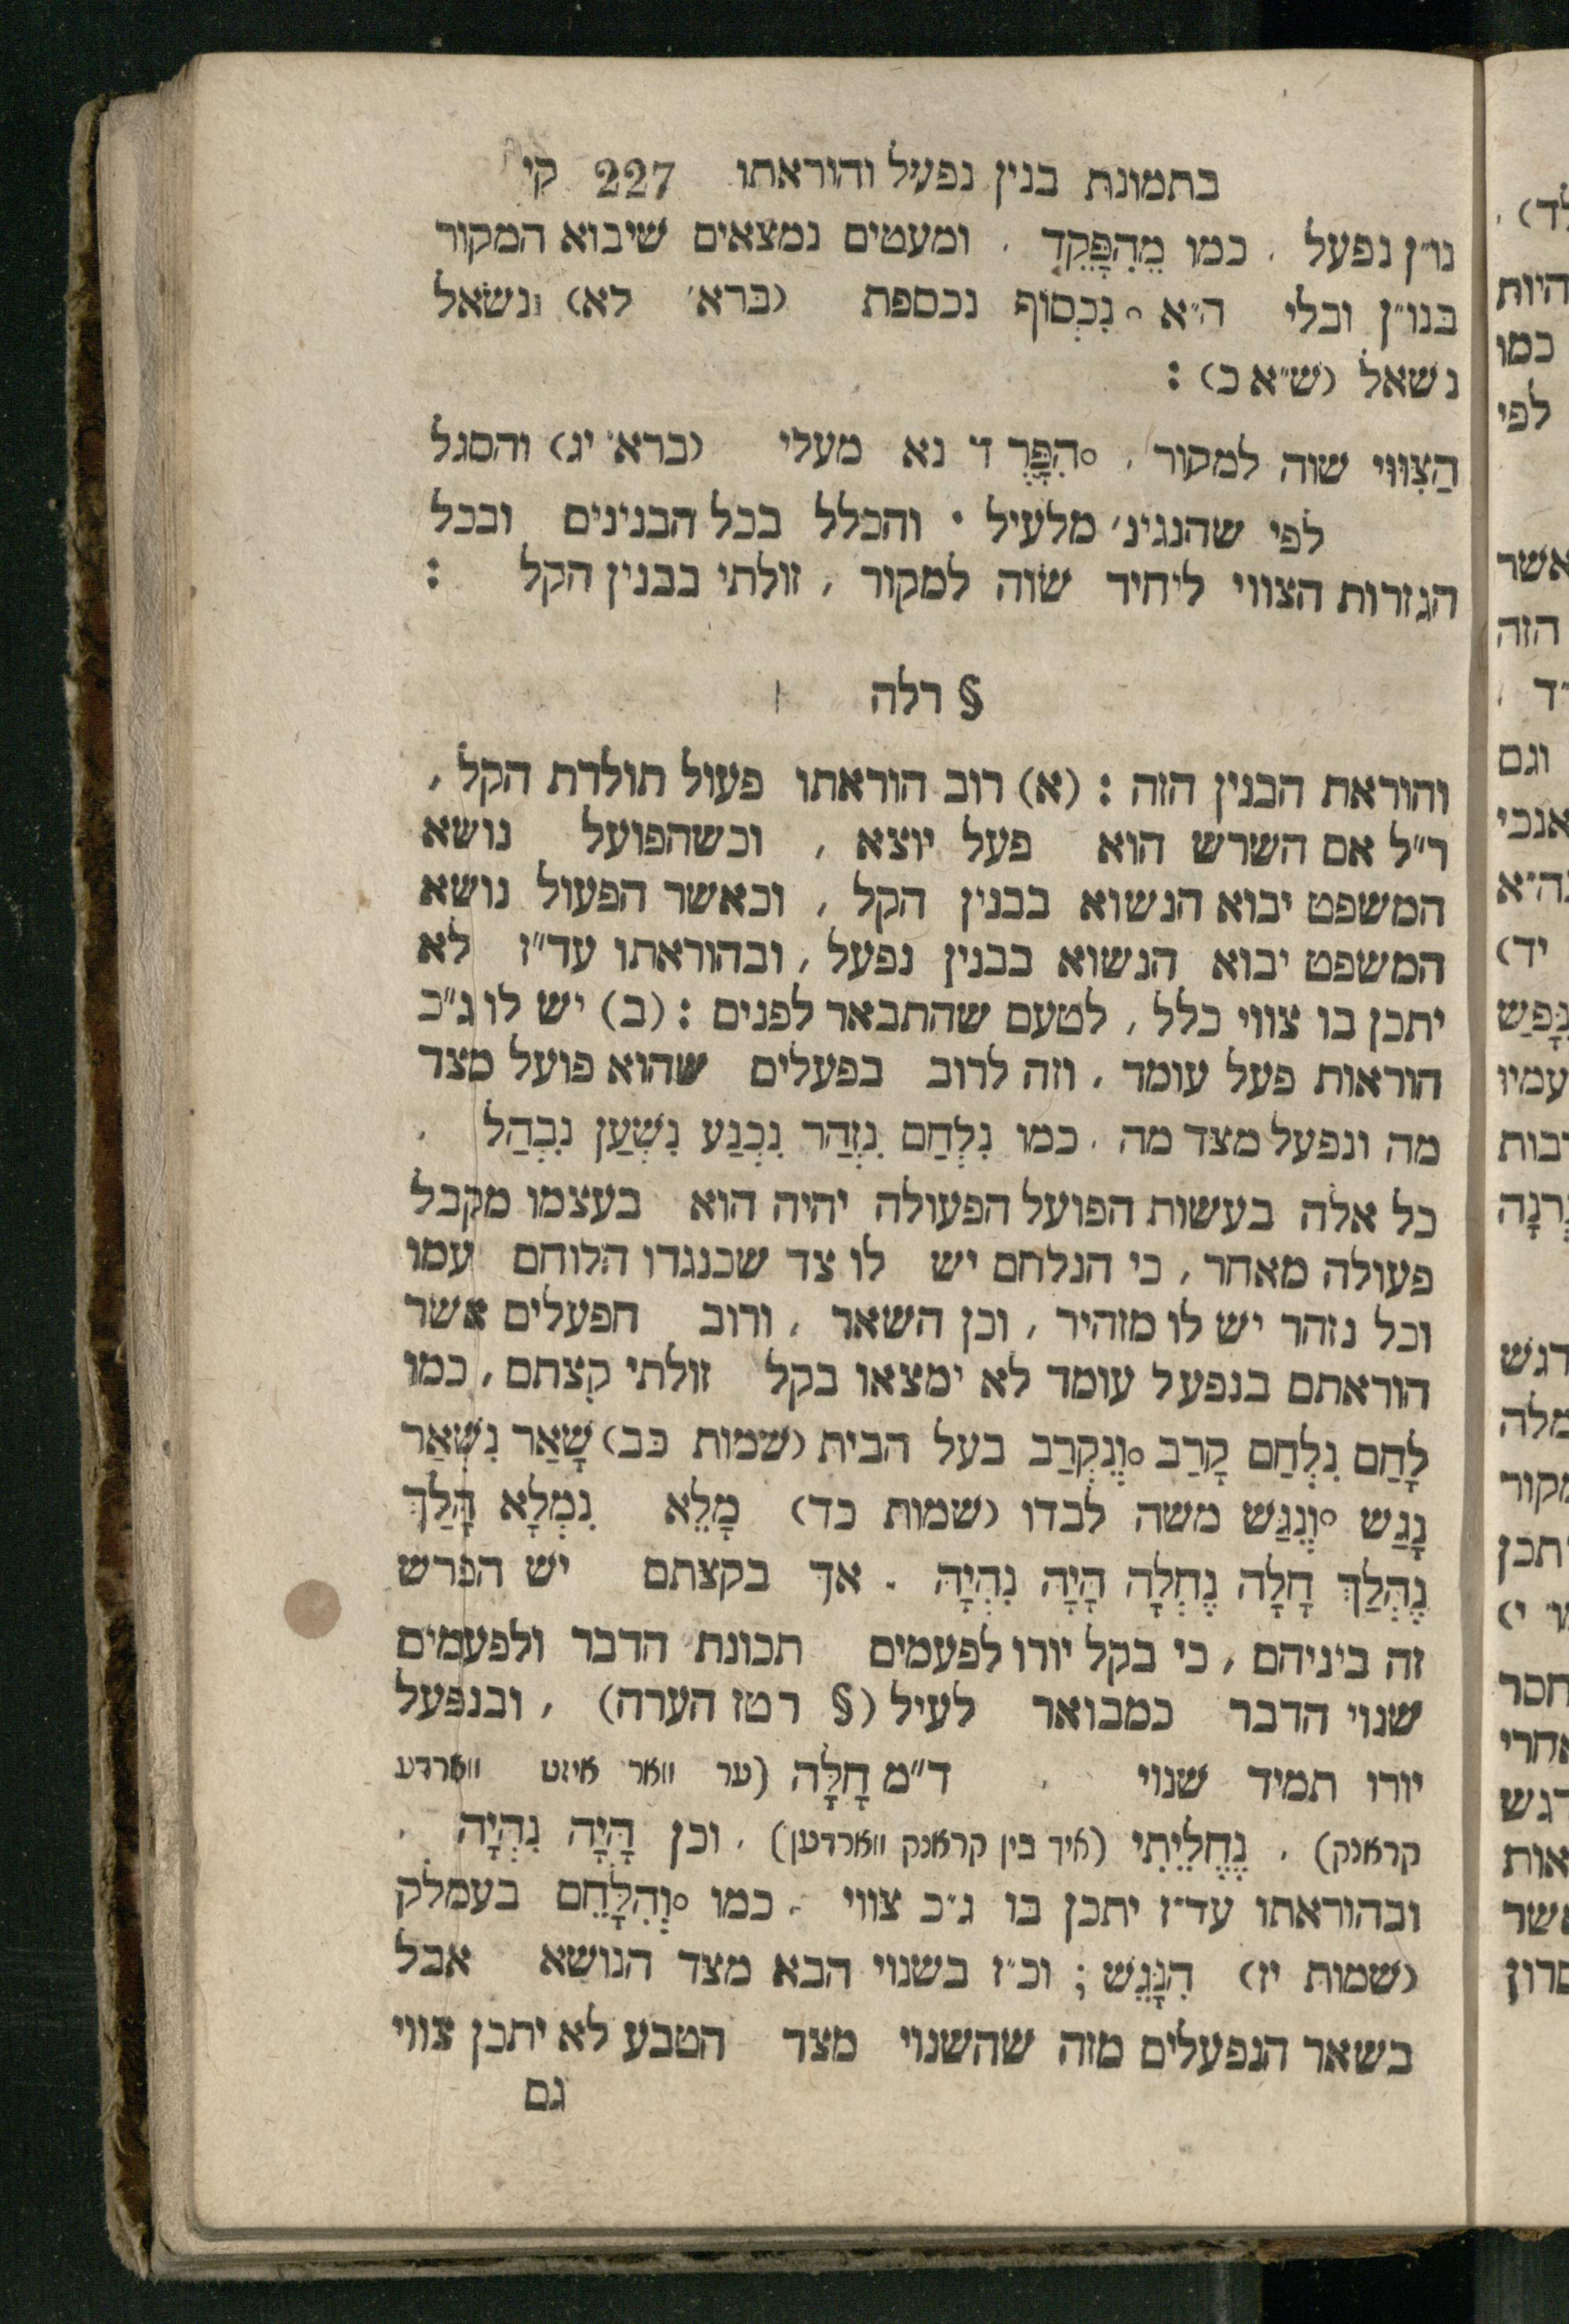 בתמונת בנין נפעל והוראתו 227 קי
נו״ן נפעל , כמו מֵהִפָּקֵד , ומעטים נמצאים שיבוא המקור
בנו״ן ובלי ה״א ○נִכְסוֹף נכספת (ברא׳ לא) נשאל
נשאל (ש״א כ) :
הַצִוּוּי שוה למקור , ○הִפָּרֶד נא מעלי (ברא׳ יג) והסגל
לפי שהנגינ׳ מלעיל · והכלל בכל הבנינים ובכל
הגזרות הצווי ליחיד שוה למקור , זולתי בבנין הקל :
§ רלה
והוראת הבנין הזה : (א) רוב הוראתו פעול תולדת הקל ,
ר״ל אם השרש הוא פעל יוצא , וכשהפועל נושא
המשפט יבוא הנשוא בבנין הקל , וכאשר הפעול נושא
המשפט יבוא הנשוא בבנין נפעל , ובהוראתו עד״ז לא
יתכן בו צווי כלל , לטעם שהתבאר לפנים : (ב) יש לו ג״כ
הוראות פעל עומד , וזה לרוב בפעלים שהוא פועל מצד
מה ונפעל מצד מה , כמו נִלְחַם נִזְהַר נִכְנַע נִשְׁעַן נִבְהַל ,
כל אלה בעשות הפועל הפעולה יהיה הוא בעצמו מקבל
פעולה מאחר , כי הנלחם יש לו צד שכנגדו הלוחם עמו
וכל נזהר יש לו מזהיר , וכן השאר , ורוב הפעלים אשר
הוראתם בנפעל עומד לא ימצאו בקל זולתי קצתם , כמו
לָחַם נִלְחַם קָרַב ○וְנִקְרַב בעל הבית (שמות כב) שָׁאַר נִשְׁאַר
נָגַשׁ ○וְנִגַּשׁ משה לבדו (שמות כד) מָלֵא נִמְלָא הָלַךְ
נֶהְלַךְ חָלָה נֶחְלָה הָיָה נִהְיָה . אך בקצתם יש הפרש
זה ביניהם , כי בקל יורו לפעמים תכונת הדבר ולפעמים
שנוי הדבר כמבואר לעיל (§ רטז הערה) , ובנפעל
יורו תמיד שנוי , ד״מ חָלָה (ער וואר איזט ווארדע
קראנק) , נֶחֱלֵיתִי (איך בין קראנק ווארדען) , וכן הָיָה נִהְיָה ,
ובהוראתו עד״ז יתכן בו ג״כ צווי , כמו ○וְהִלָּחֵם בעמלק
(שמות יז) הִנָּגֵשׁ ; וכ״ז בשנוי הבא מצד הנושא אבל
בשאר הנפעלים מזה שהשנוי מצד הטבע לא יתכן צווי
גם